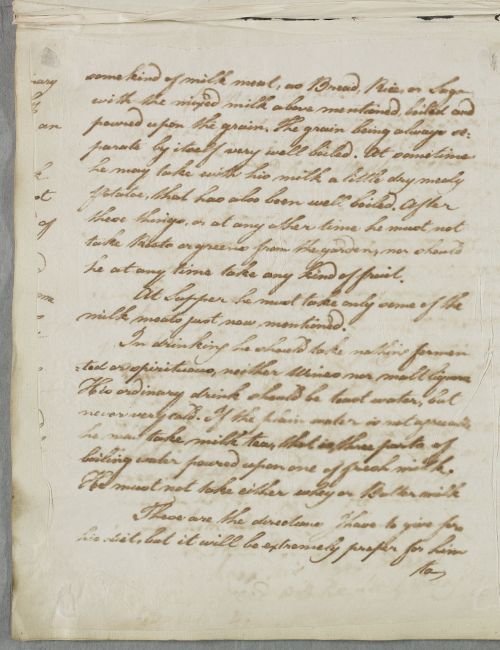 some kind of milk meat, as Bread, Rice, or Sago
with the mixed milk above mentioned, boiled and
poured upon the grain, The grain being always se:
parate by itself very well boiled. At sometime
he may take with his milk a little dry mealy
Potatoe, that has also been well boiled. After
these things, or at any other time he must not
take Roots or greens from the garden, nor should
he at any time take any kind of fruit.
At Supper he must take only some of the
milk meats just now mentioned.
In drinking he should take nothing fermen
:ted or spirituous, neither Wines nor malt liquors
His ordinary drink should be toast water, but
never very cold. If the plain water is not agreeable
he may take milk tea, that is three parts of
boiling water poured upon one of fresh milk.
He must not take either whey or Butter milk
These are the directions I have to give for
his diet, but it will be extremely proper for him
to